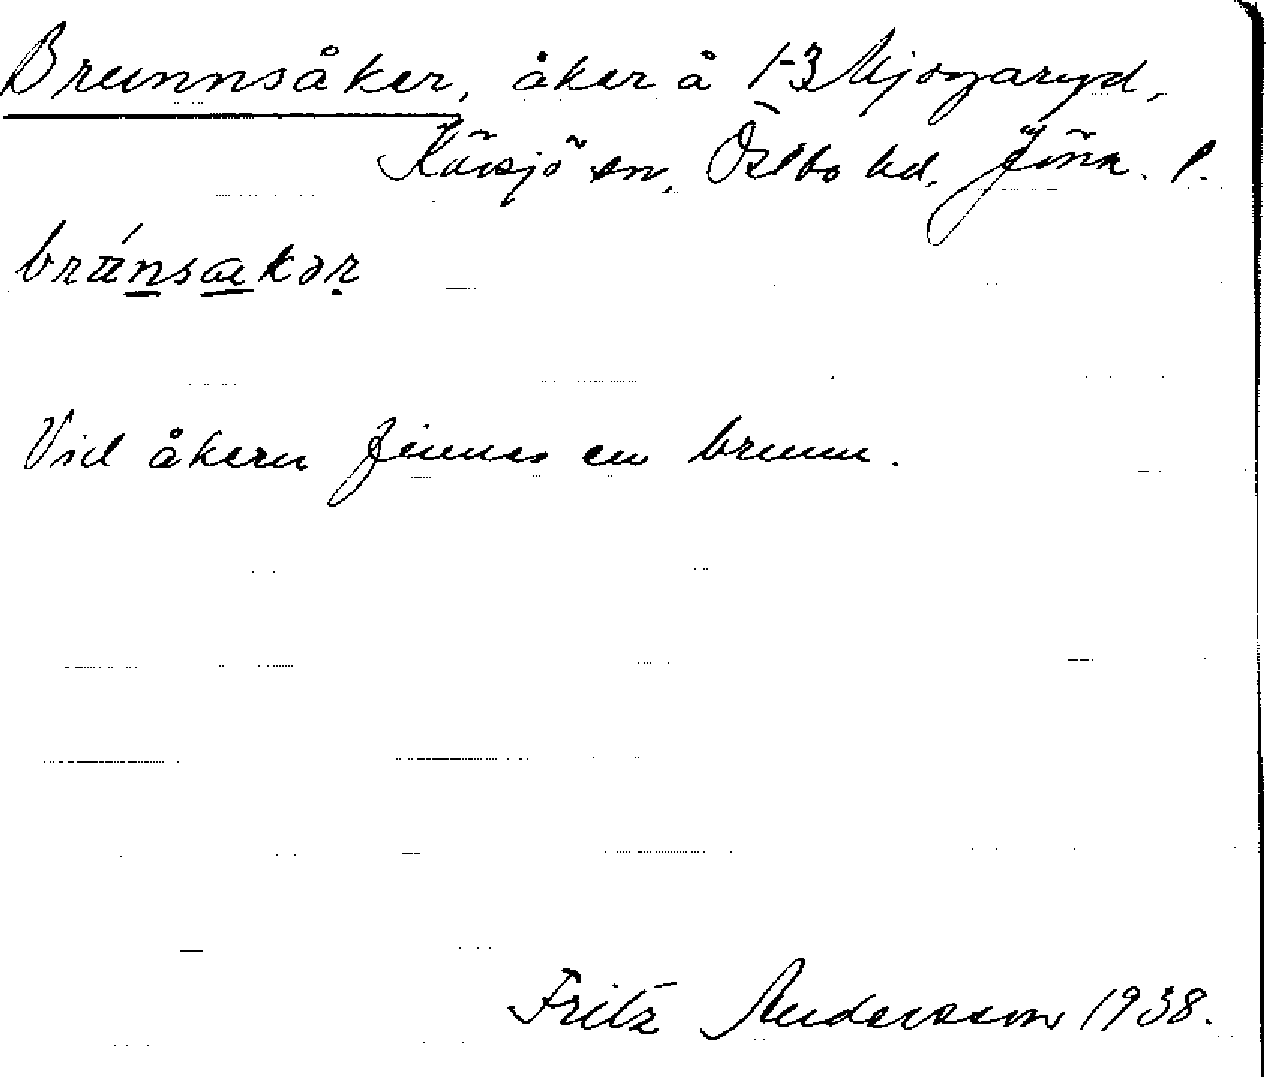 Brunnsåker, åker å 1-3 Mjogaryd,
Kävsjö sn, Östbo hd, Jönk. l.
Vid åkern finnes en brunn.
Fritz Andersson 1938.